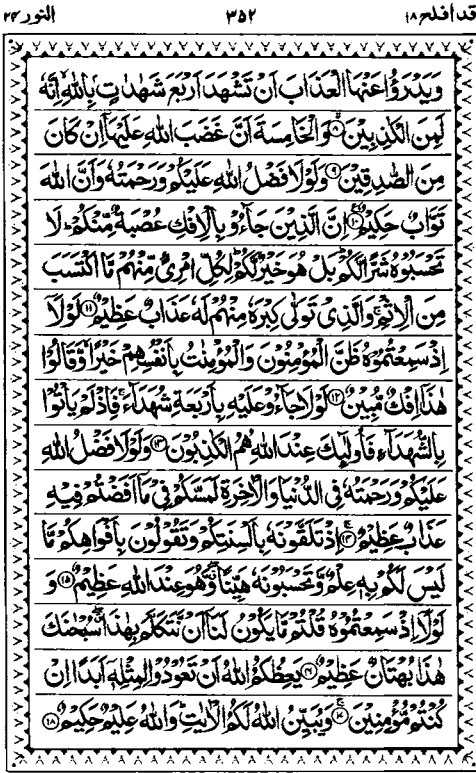 قد افلح ۱۸ ۳۵۲ النور ۲۴
وَيَدْرَؤُا عَنْهَا الْعَذَابَ اَنْ تَشْهَدَ اَرْبَعَ شَهٰدٰتٍ بِاللّٰهِ اِنَّهٗ
لَمِنَ الْكٰذِبِيْنَ ۸ وَالْخَامِسَةَ اَنَّ غَضَبَ اللّٰهِ عَلَيْهَا اِنْ كَانَ
مِنَ الصّٰدِقِيْنَ ۹ وَلَوْلَا فَضْلُ اللّٰهِ عَلَيْكُمْ وَرَحْمَتُهٗ وَاَنَّ اللّٰهَ
تَوَّابٌ حَكِيْمٌ ۱۰ اِنَّ الَّذِيْنَ جَآءُوْ بِالْاِفْكِ عُصْبَةٌ مِّنْكُمْ ؕ لَا
تَحْسَبُوْهُ شَرًّا لَّكُمْ ؕ بَلْ هُوَ خَيْرٌ لَّكُمْ ؕ لِكُلِّ امْرِئٍ مِّنْهُمْ مَّا اكْتَسَبَ
مِنَ الْاِثْمِ ۚ وَالَّذِيْ تَوَلّٰى كِبْرَهٗ مِنْهُمْ لَهٗ عَذَابٌ عَظِيْمٌ ۱۱ لَوْلَاۤ
اِذْ سَمِعْتُمُوْهُ ظَنَّ الْمُؤْمِنُوْنَ وَالْمُؤْمِنٰتُ بِاَنْفُسِهِمْ خَيْرًا ۙ وَّقَالُوْا
هٰذَاۤ اِفْكٌ مُّبِيْنٌ ۱۲ لَوْلَا جَآءُوْ عَلَيْهِ بِاَرْبَعَةِ شُهَدَآءَ ۚ فَاِذْ لَمْ يَاْتُوْا
بِالشُّهَدَآءِ فَاُولٰٓئِكَ عِنْدَ اللّٰهِ هُمُ الْكٰذِبُوْنَ ۱۳ وَلَوْلَا فَضْلُ اللّٰهِ
عَلَيْكُمْ وَرَحْمَتُهٗ فِى الدُّنْيَا وَالْاٰخِرَةِ لَمَسَّكُمْ فِيْ مَاۤ اَفَضْتُمْ فِيْهِ
عَذَابٌ عَظِيْمٌ ۱۴ اِذْ تَلَقَّوْنَهٗ بِاَلْسِنَتِكُمْ وَتَقُوْلُوْنَ بِاَفْوَاهِكُمْ مَّا
لَيْسَ لَكُمْ بِهٖ عِلْمٌ وَّتَحْسَبُوْنَهٗ هَيِّنًا ۖ وَّهُوَ عِنْدَ اللّٰهِ عَظِيْمٌ ۱۵ وَ
لَوْلَاۤ اِذْ سَمِعْتُمُوْهُ قُلْتُمْ مَّا يَكُوْنُ لَنَاۤ اَنْ نَّتَكَلَّمَ بِهٰذَا ۖ سُبْحٰنَكَ
هٰذَا بُهْتَانٌ عَظِيْمٌ ۱۶ يَعِظُكُمُ اللّٰهُ اَنْ تَعُوْدُوْا لِمِثْلِهٖۤ اَبَدًا اِنْ
كُنْتُمْ مُّؤْمِنِيْنَ ۱۷ وَيُبَيِّنُ اللّٰهُ لَكُمُ الْاٰيٰتِ ؕ وَاللّٰهُ عَلِيْمٌ حَكِيْمٌ ۱۸